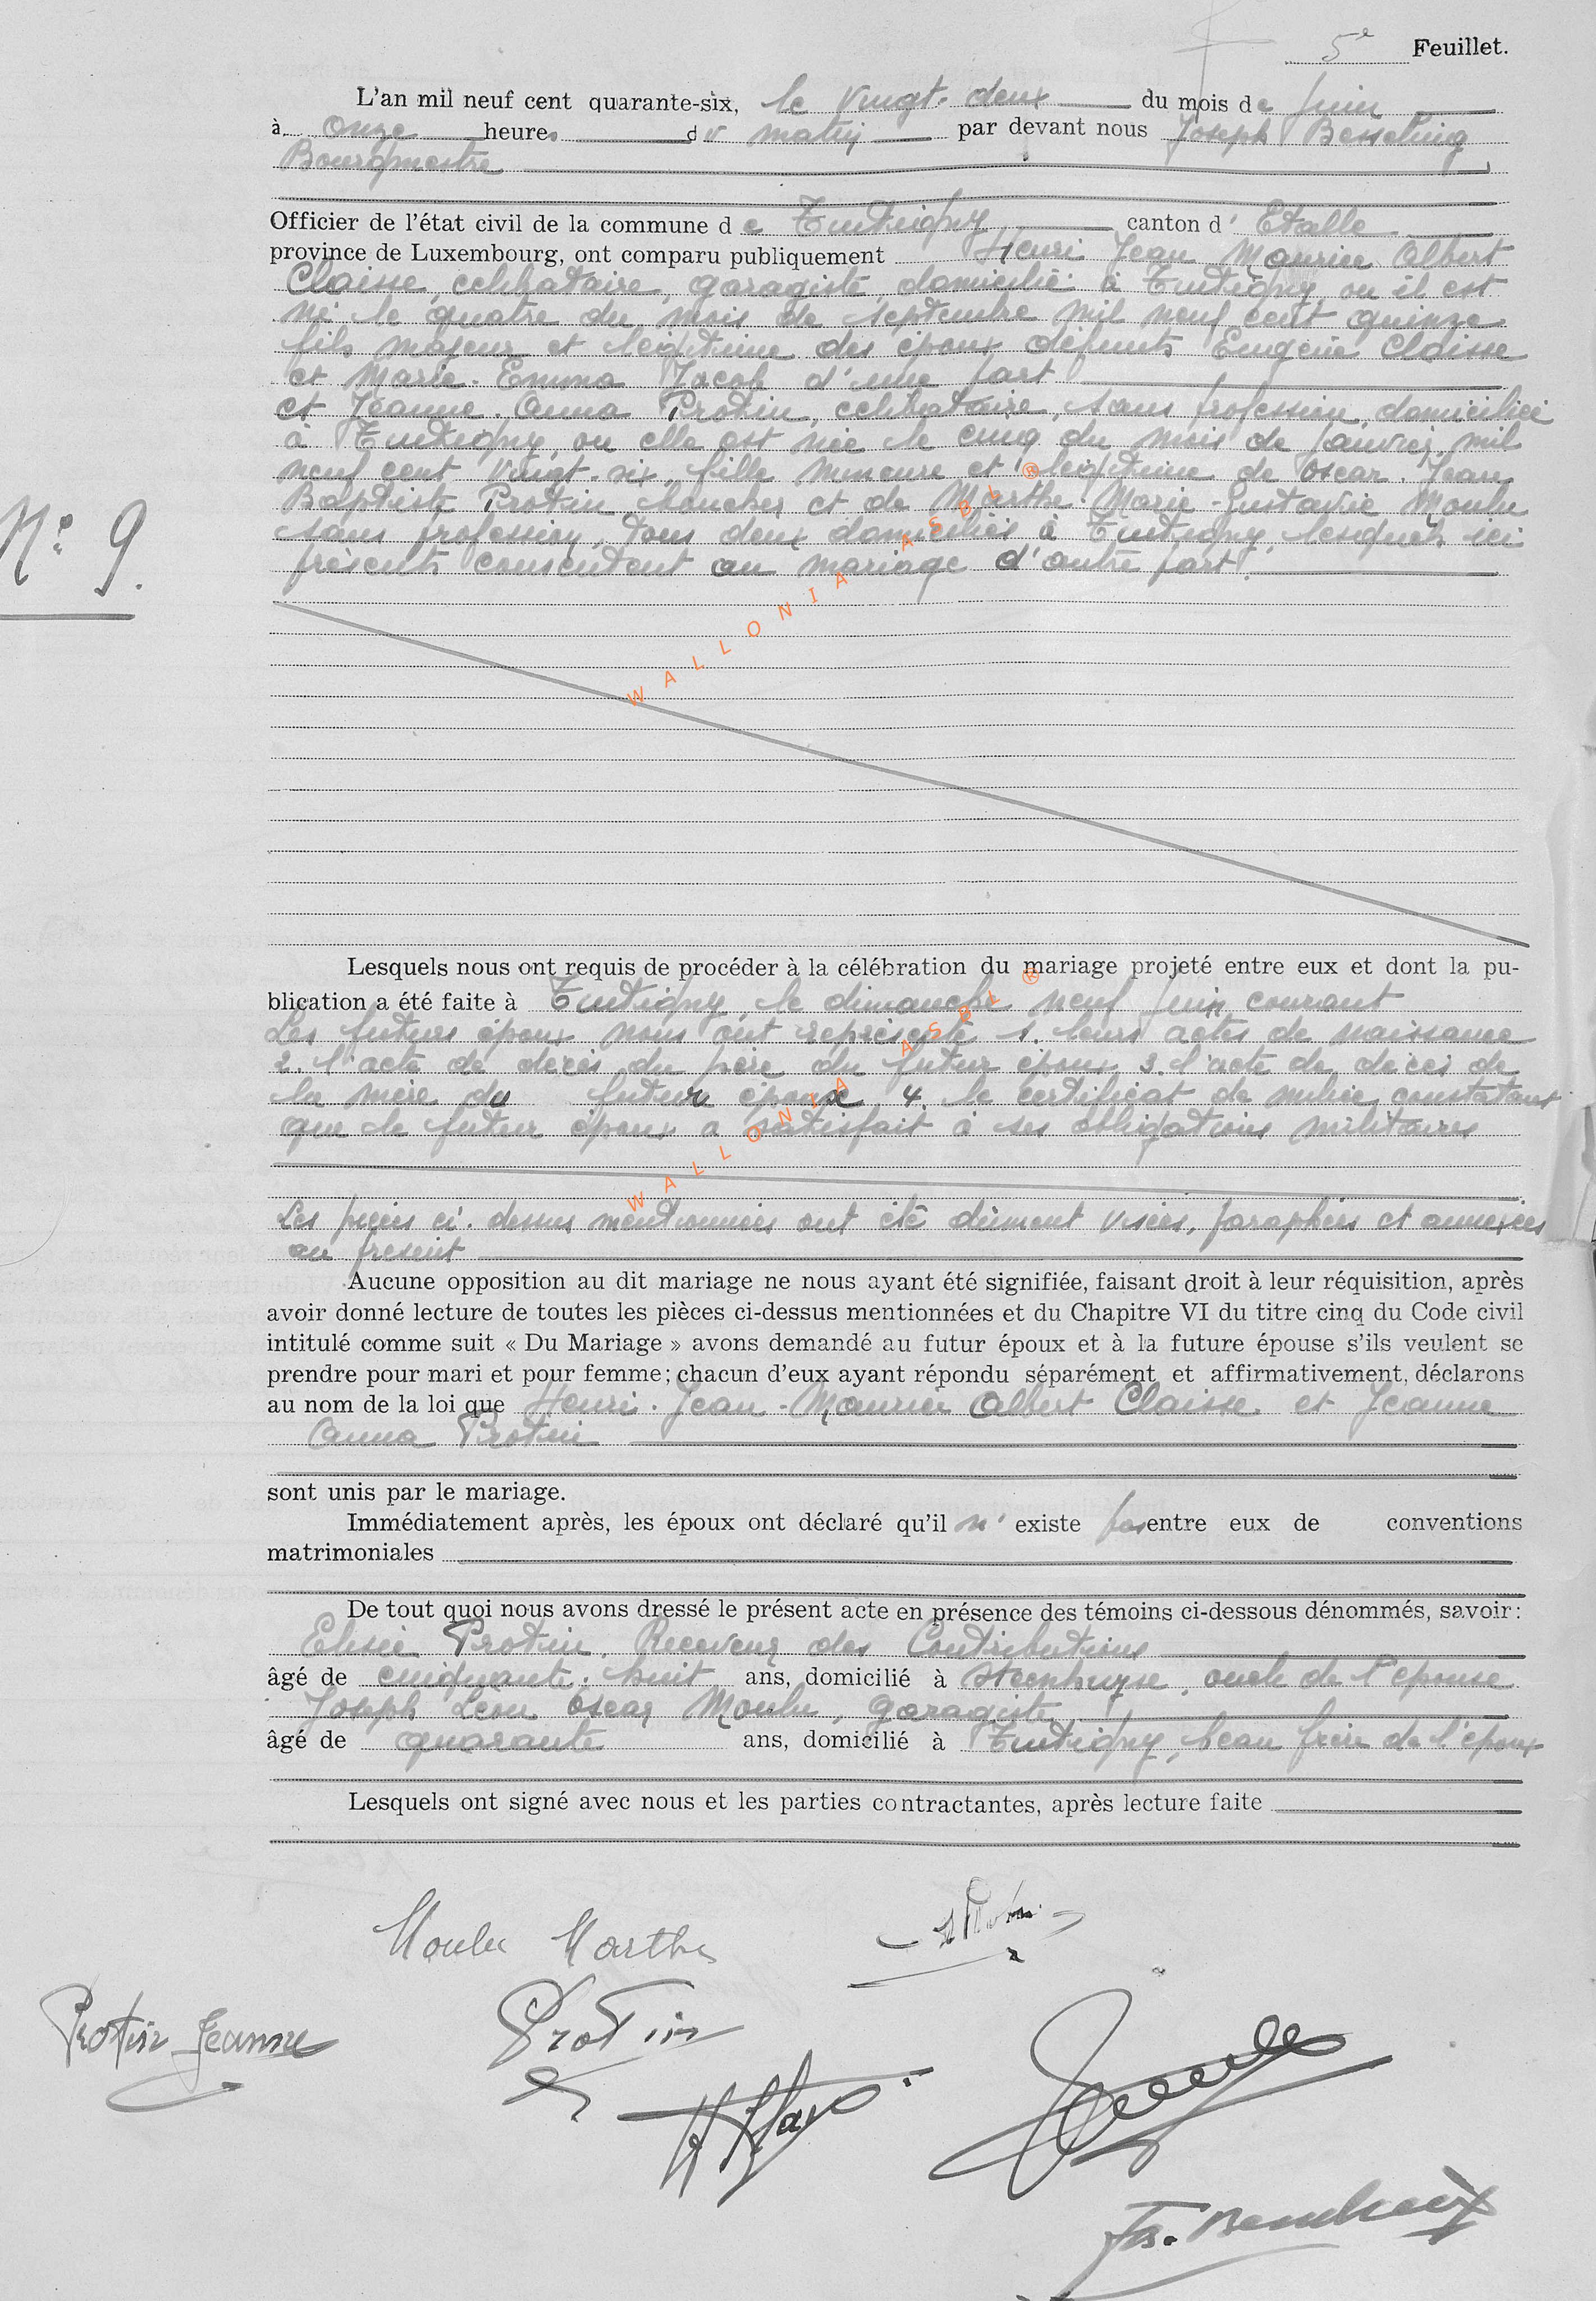 5e Feuillet.
L'an mil neuf cent quarante-six, le vingt-deux du mois de juin
à onze heures du matin par devant nous Joseph Besseling
Bourgmestre
Officier de l'état civil de la commune de Tintigny canton d' Etalle
province de Luxembourg, ont comparu publiquement Henri Jean Maurice Albert
Claisse, célibataire, garagiste, domicilié à Tintigny, ou il est
né le quatre du mois de septembre mil neuf cent quinze
fils majeur et légitime des époux défunts Eugène Claisse
et Marie-Emma Jacob d'une part
et Jeanne-Anna Protin, célibataire, sans profession, domiciliée
à Tintigny, ou elle est née le cinq du mois de janvier mil
neuf cent vingt-six, fille mineure et légitime de Oscar-Jean
Baptiste Protin boucher et de Marthe-Marie-Gustavie Moulu
sans profession, tous deux domiciliés à Tintigny, lesquels ici
présents consentent au mariage d'autre part.
No 9.
WALLONIA ASBL ®
Lesquels nous ont requis de procéder à la célébration du mariage projeté entre eux et dont la pu-
blication a été faite à Tintigny, le dimanche neuf juin courant
Les futurs époux nous ont représenté 1. leurs actes de naissance
2. l'acte de décès du père du futur époux 3. l'acte de décès de
la mère du futur époux 4. le certificat de milice constatant
que le futur époux a satisfait à ses obligations militaires
WALLONIA ASBL ®
Les pièces ci-dessus mentionnées ont été dûment visées, paraphées et annexées
au présent
Aucune opposition au dit mariage ne nous ayant été signifiée, faisant droit à leur réquisition, après
avoir donné lecture de toutes les pièces ci-dessus mentionnées et du Chapitre VI du titre cinq du Code civil
intitulé comme suit « Du Mariage » avons demandé au futur époux et à la future épouse s'ils veulent se
prendre pour mari et pour femme; chacun d'eux ayant répondu séparément et affirmativement, déclarons
au nom de la loi que Henri-Jean-Maurice Albert Claisse et Jeanne
Anna Protin
sont unis par le mariage.
Immédiatement après, les époux ont déclaré qu'il n' existe pas entre eux de conventions
matrimoniales
De tout quoi nous avons dressé le présent acte en présence des témoins ci-dessous dénommés, savoir:
Elisée Protin, Receveur des Contributions
âgé de cinquante-huit ans, domicilié à Steenhuyse, oncle de l'épouse
Joseph Léon Oscar Moulu, garagiste
âgé de quarante ans, domicilié à Tintigny, beau frère de l'époux
Lesquels ont signé avec nous et les parties contractantes, après lecture faite
Moulu Marthe
Protin Jeanne
Protin